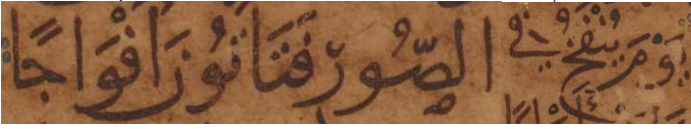 يَوْمَ يُنْفَخُ فِي الصُّورِ فَتَاْتُونَ اَفْوَاجًا